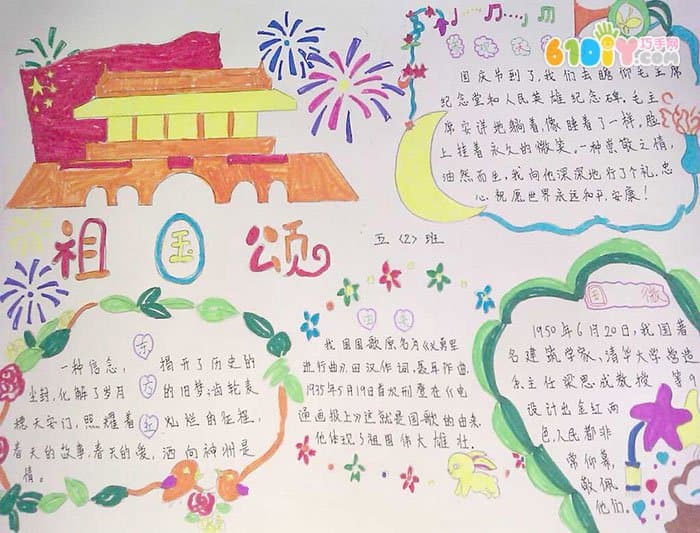 祖国颂
61DIY巧手网
国庆节到了,我们去瞻仰毛主席
纪念堂和人民英雄纪念碑。毛主
席安详地躺着,像睡着了一样,脸
上挂着永久的微笑。一种崇敬之情,
油然而生,我向他深深地行了个礼,忠
心祝愿世界永远和平,安康!
五〈2〉班
东方
一种信念, 揭开了历史的
尘封,化解了岁月 的旧梦;齿轮麦
穗天安门,照耀着 灿烂的征程,
春天的故事,春天的爱,洒向神州是
情。
国
我国国歌原名为《义勇军
进行曲》,田汉作词,聂耳作曲,
1935年5月19首次刊登在《电
通画报上》这就是国歌的由来,
他体现了祖国伟大雄壮。
国徽
1950年6月20日,我国著
名建筑学家、清华大学营造
系主任梁思成教授等
设计出金红两
色,人民都非
常仰慕,
敬佩
他们。